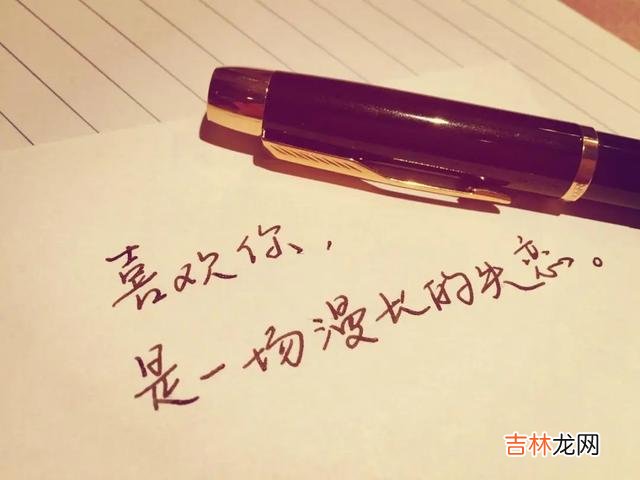 喜欢你，
是一场漫长的失恋。
吉林龙网